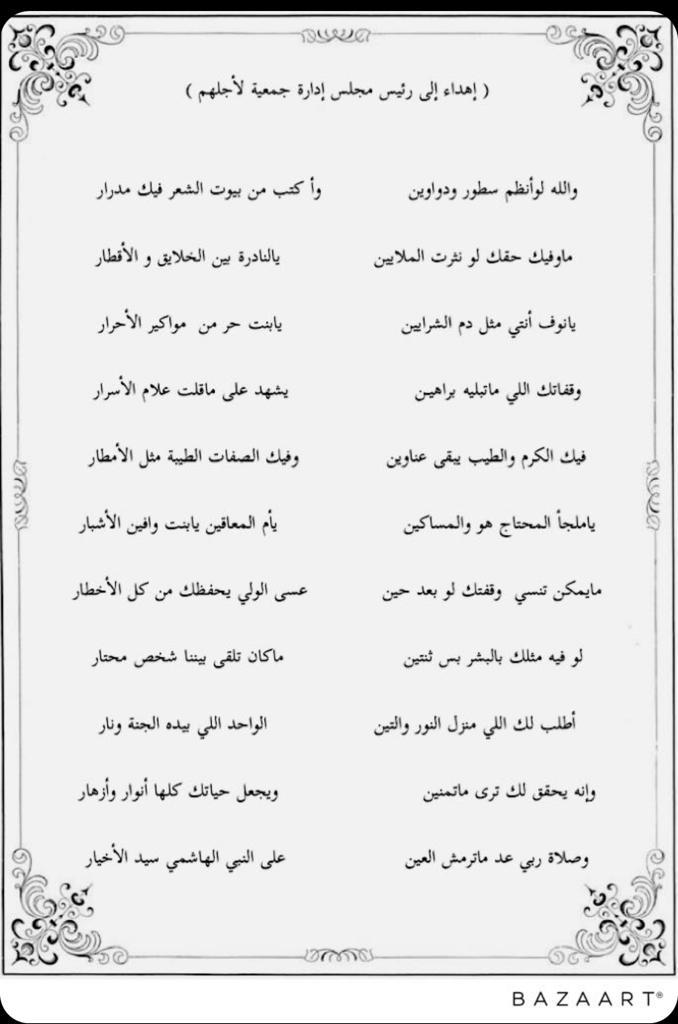 ( إهداء إلى رئيس مجلس إدارة جمعية لأجلهم )
والله لوأنظم سطور ودواوين وأ كتب من بيوت الشعر فيك مدرار
ماوفيك حقك لو نثرت الملايين يالنادرة بين الخلايق و الأقطار
يانوف أنتي مثل دم الشرايين يابنت حر من مواكير الأحرار
وقفاتك اللي ماتبليه براهين يشهد على ماقلت علام الأسرار
فيك الكرم والطيب يبقى عناوين وفيك الصفات الطيبة مثل الأمطار
ياملجأ المحتاج هو والمساكين يأم المعاقين يابنت وافين الأشبار
مايمكن تنسي وقفتك لو بعد حين عسى الولي يحفظك من كل الأخطار
لو فيه مثلك بالبشر بس ثنتين ماكان تلقى بيننا شخص محتار
أطلب لك اللي منزل النور والتين الواحد اللي بيده الجنة ونار
وإنه يحقق لك ترى ماتمنين ويجعل حياتك كلها أنوار وأزهار
وصلاة ربي عد ماترمش العين على النبي الهاشمي سيد الأخيار
BAZAART®